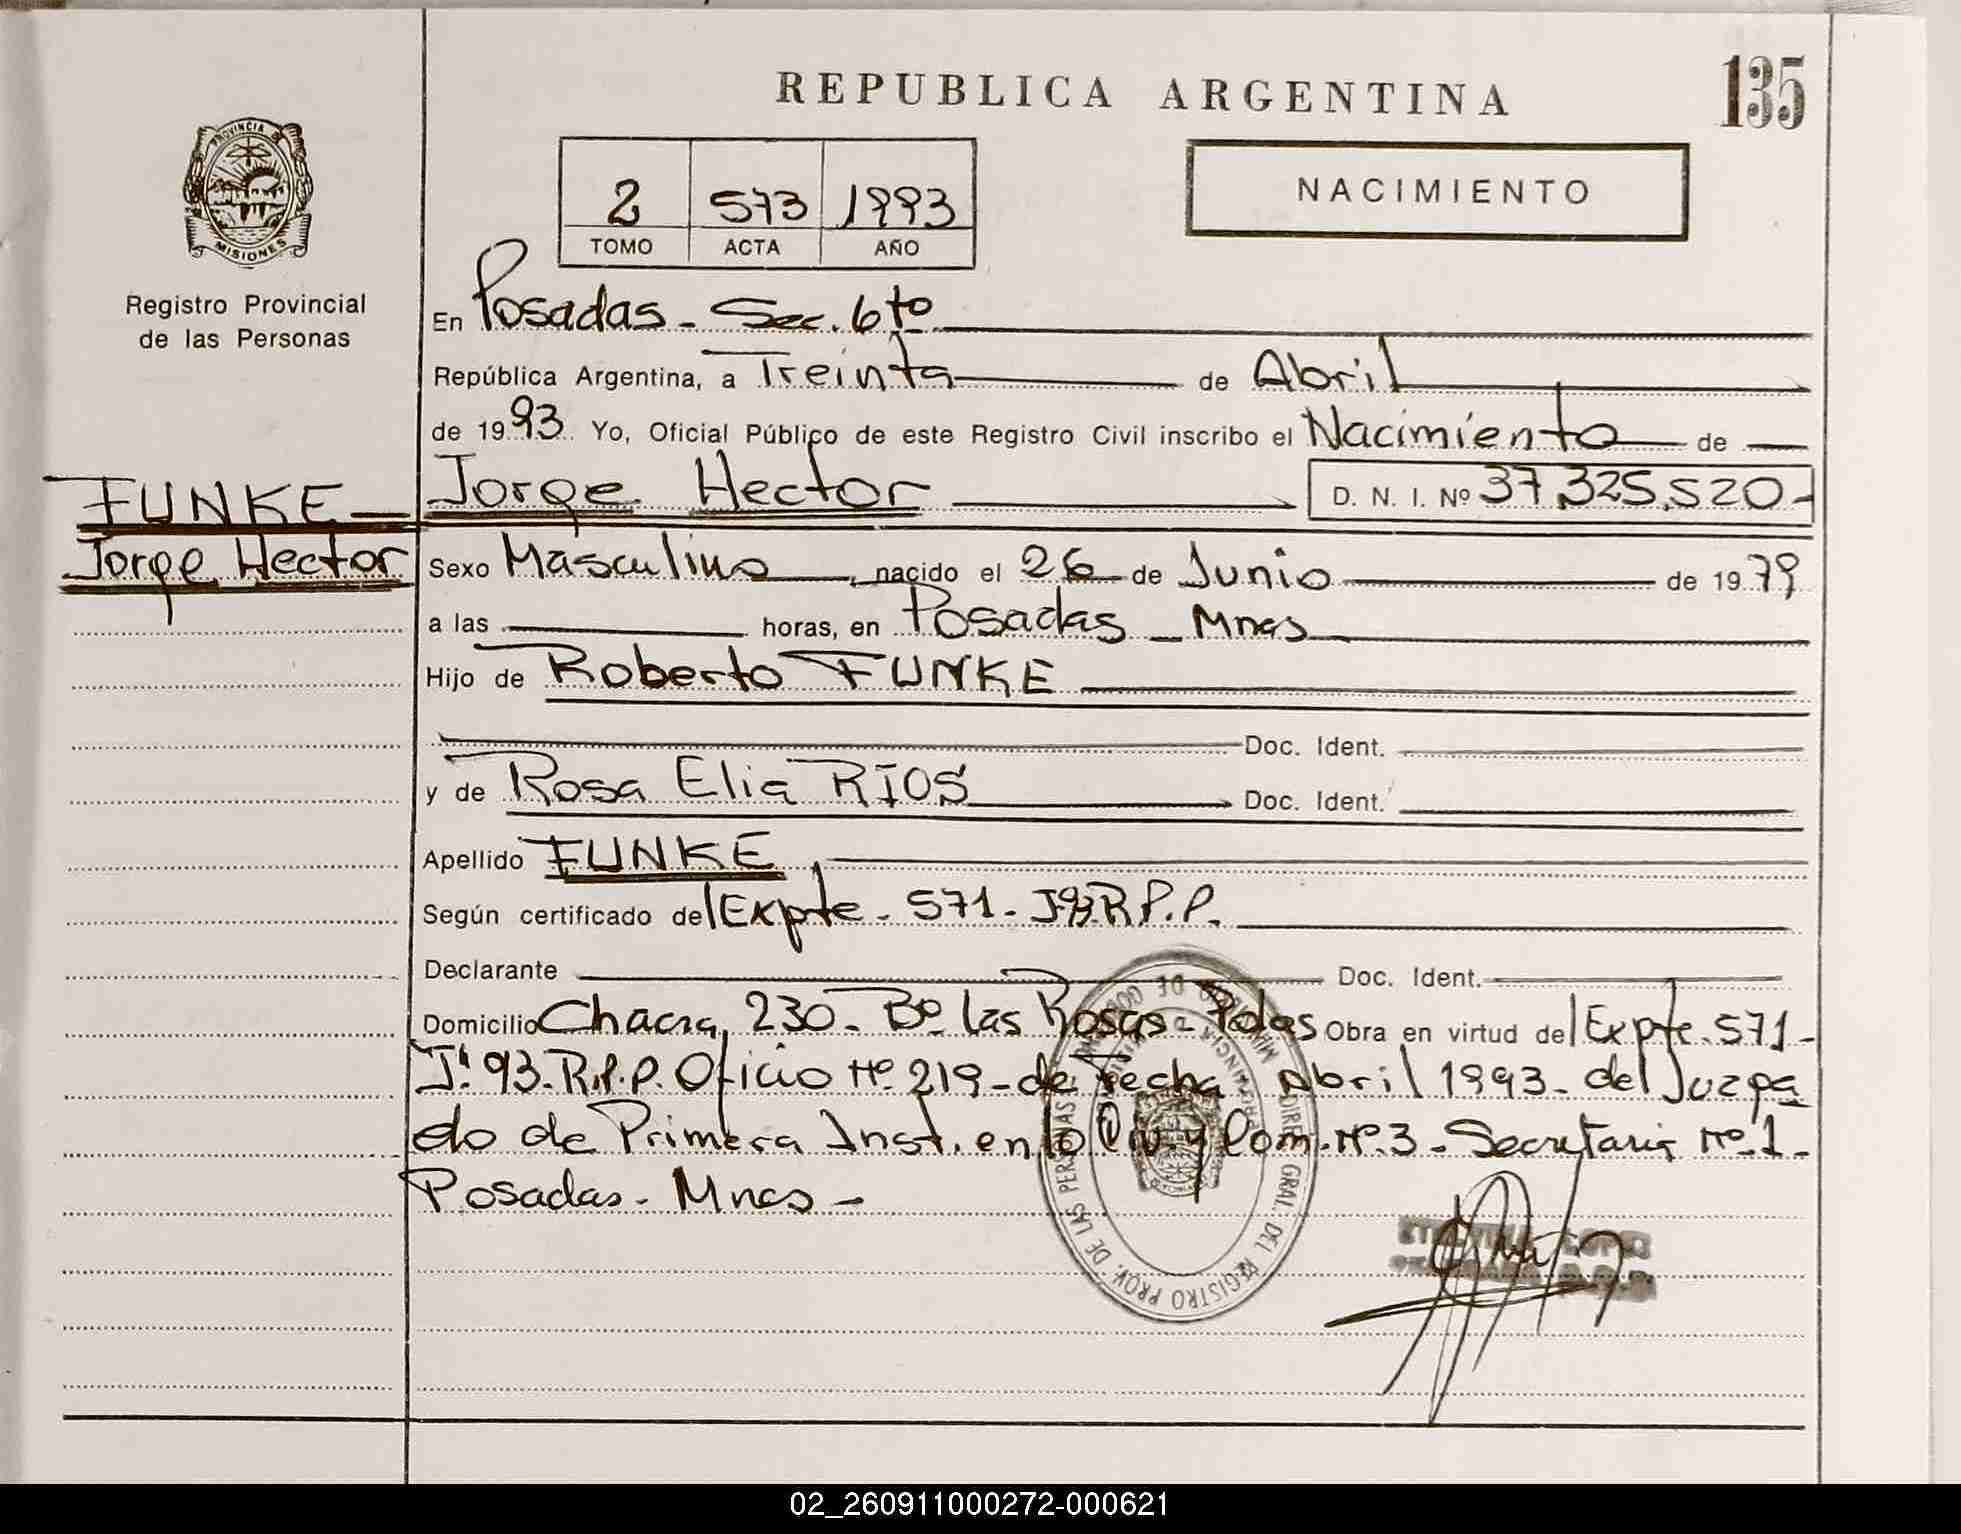 REPUBLICA ARGENTINA
135
PROVINCIA DE
MISIONES
Registro Provincial
de las Personas
2 573 1993
TOMO ACTA AÑO
NACIMIENTO
En Posadas - Sec. 6to
República Argentina, a Treinta de Abril
de 1993 Yo, Oficial Público de este Registro Civil inscribo el Nacimiento de
FUNKE
Jorge Hector
Jorge Hector D. N. I. Nº 37.325.520-
Sexo Masculino, nacido el 26 de Junio de 1979
a las horas, en Posadas - Mnes
Hijo de Roberto FUNKE
Doc. Ident.
y de Rosa Elia RIOS Doc. Ident.
Apellido FUNKE
Según certificado del Expte - 571 - J-93.R.P.P.
Declarante Doc. Ident.
Domicilio Chacra 230 - Bº las Rosas - Pdas Obra en virtud del Expte. 571-
J. 93-R.P.P. Oficio Nº 219 - de fecha Abril 1993 - del Juzga
do de Primera Inst. en lo Civ. y Com. Nº 3 - Secretaria Nº 1 -
Posadas - Mnes -
DIREC. GRAL. DEL REGISTRO PROV. DE LAS PERSONAS
02_260911000272-000621